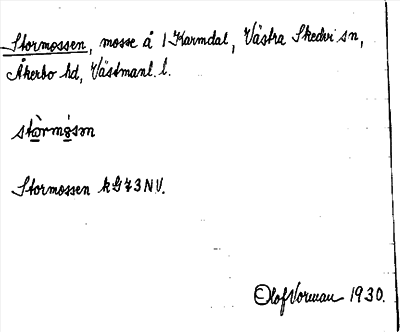 Stormossen, mosse å 1 Karmdal, Västra Skedvi sn,
Åkerbo hd, Västmanl. l.
stòrmósən
Stormossen kG73NV.
Olof Vorman 1930.